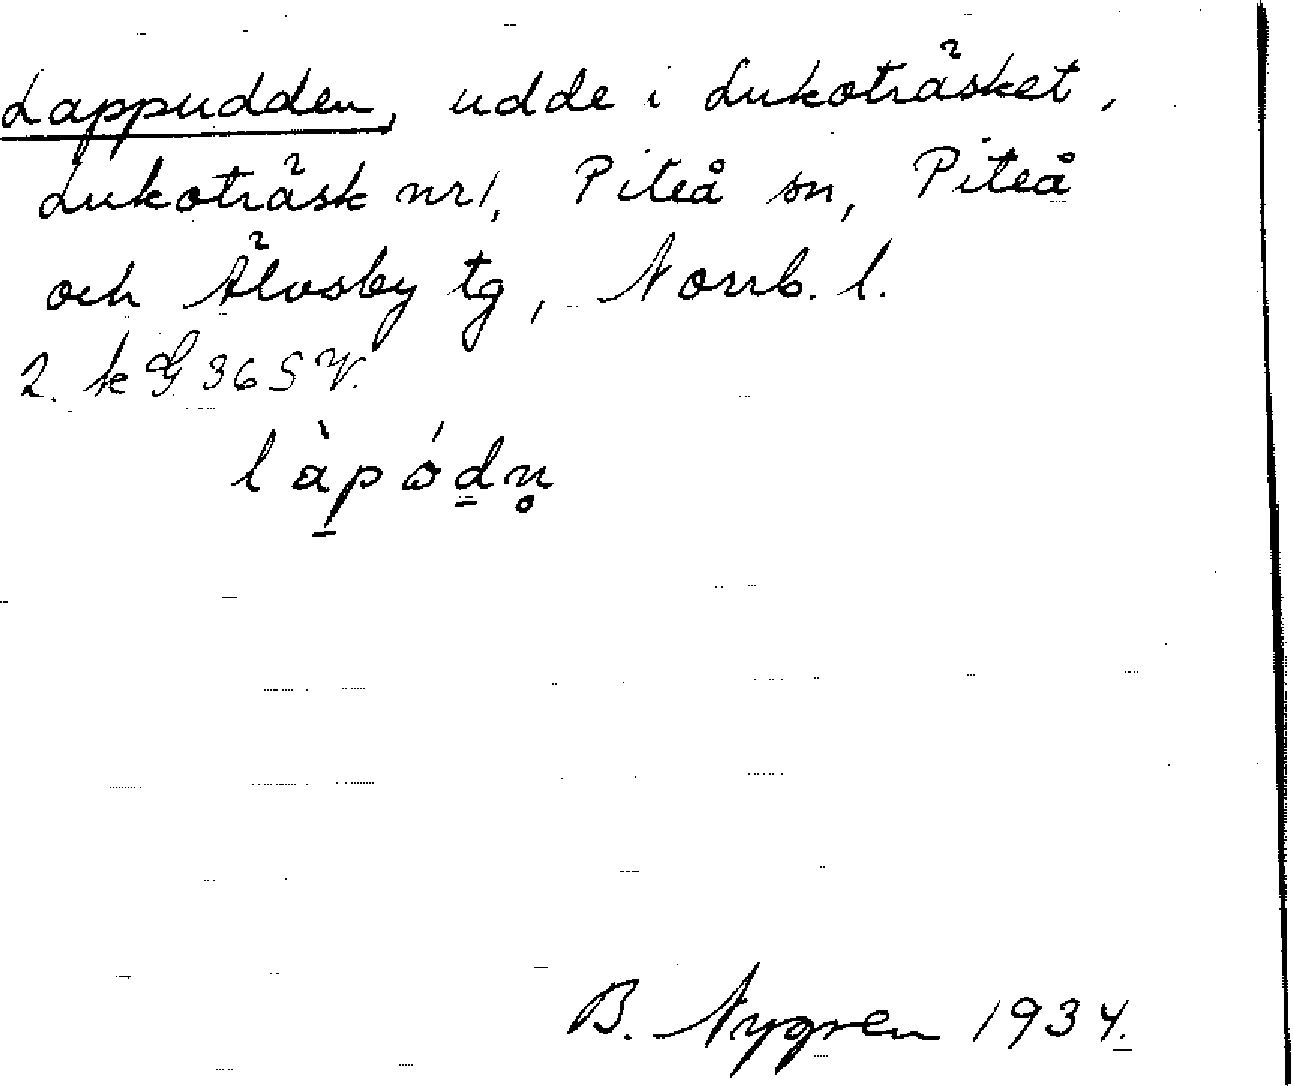 Lappudden, udde i Lukoträsket,
Lukoträsk nr 1, Piteå sn, Piteå
och Älvsby tg, Norrb. l.
2. k G 36 S V.
làpódn̥
B. Nygren 1934.